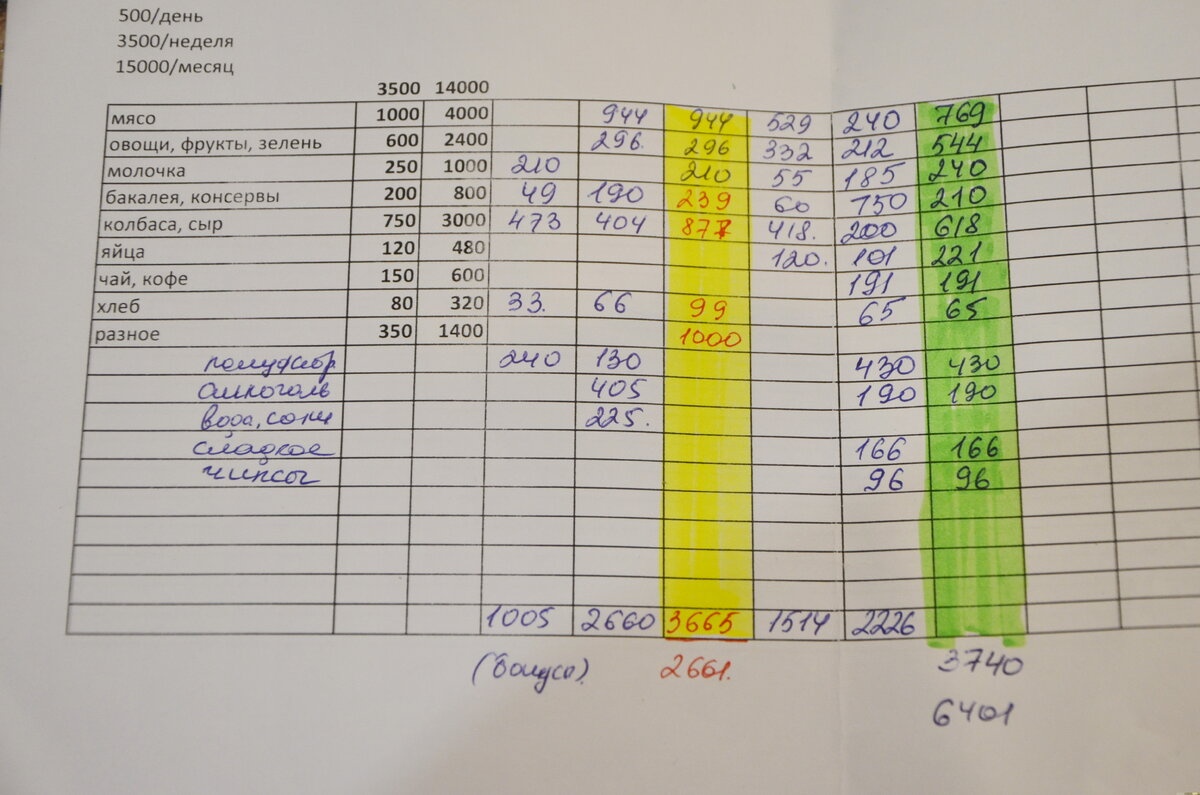 500/день
3500/неделя
15000/месяц
3500 14000
мясо 1000 4000 944 944 529 240 769
овощи, фрукты, зелень 600 2400 296. 296 332 212 544
молочка 250 1000 210 210 55 185 240
бакалея, консервы 200 800 49 190 239 60 150 210
колбаса, сыр 750 3000 473 404 877 418. 200 618
яйца 120 480 120. 101 221
чай, кофе 150 600 191 191
хлеб 80 320 33. 66 99 65 65
разное 350 1400 1000
240 130 430 430
алкоголь 405 190 190
вода, соки 225.
сладкое 166 166
чипсы 96 96
1005 2660 3665 1514 2226
(бонусы). 2661. 3740
6401